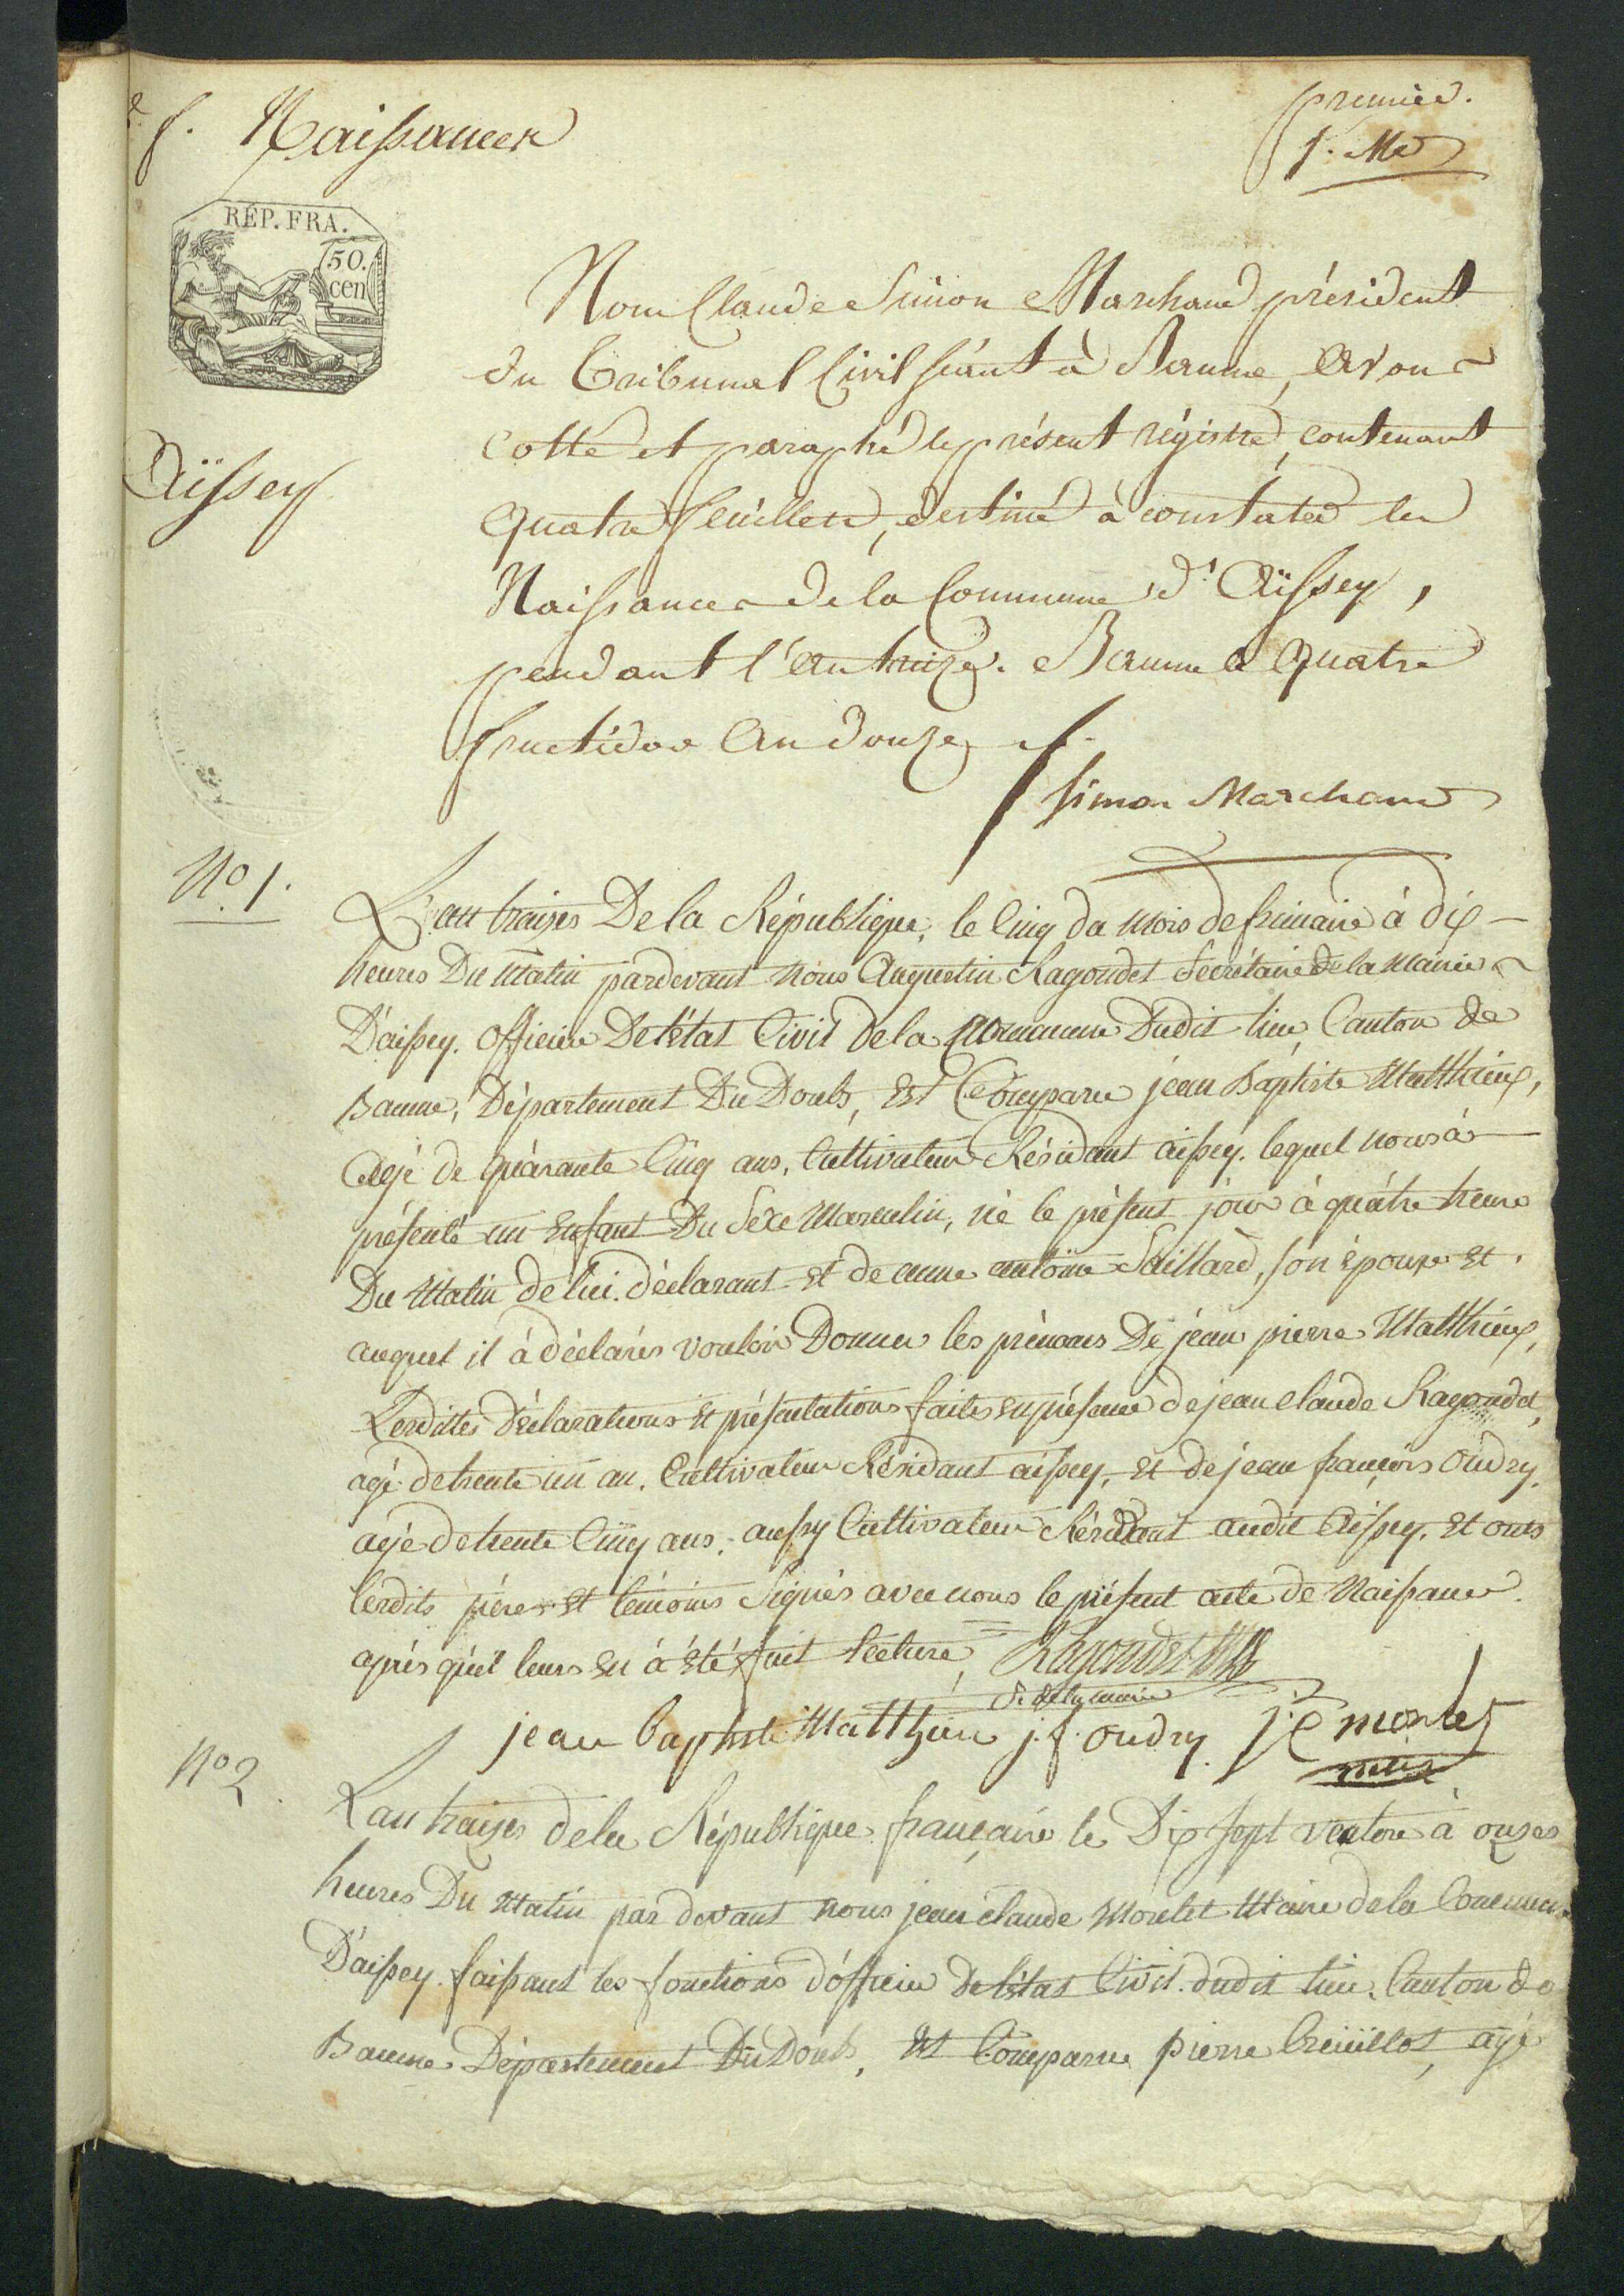 Naissances
premier.
1. M
RÉP. FRA.
50.
cen
Aïssey
Nous Claude Simon Marchand président
du Tribunal Civil séant à Baume, avons
cotté et paraphé le présent régistre, contenant
quatre feuillets, destiné à constater les
Naissances de la Commune d'Aïssey,
pendant l'an treize. Baume le quatre
fructidor an douze
Simon Marchand
No. 1.
L'an traizes De la République, le cinq du mois de frimaire à dix
heures Du Matin pardevant nous Augustin Ragondet Secrétaire de la Mairie
D'aissey. officier De l'état Civil de la Commune Dudit lieu, Canton de
Baume, Département Du Doubs, Est Comparu jean Baptiste Matthieux,
agé de quarante Cinq ans, Cultivateur Résidant aissey. lequel nous à
présenté un Enfant Du Sexe Masculin, né le présent jour à quatre heure
Du Matin de lui déclarant et de anne antoine Saillard, son épouse et
auquel il à déclarés vouloir Donner les prénoms De jean pierre Matthieux,
Lesdittes Déclarations et présentations faites en présence de jean claude Ragondet,
agé de trente un an. Cultivateur Résidant aissey, et de jean françois Oudry,
agé de trente Cinq ans, aussy Cultivateur Résidant audit Aissey. Et onts
lesdits pères et témoins Signés avec nous le présent acte de Naissance.
après qu'il leurs en à été fait lecture, Ragondet
S. de la mairie
jean baptiste Matthieu j. f. oudry j C morlet
No 2
L'an traizes de la République française le Dix sept ventose à onzes
heures Du Matin par devant nous jean claude Morlet Maire de la Commune
D'aissey. faissant les fonctions d'officier de l'état Civil. dudit lieu, Canton de
Baume Département Du Doubs, Est Comparu pierre, agé